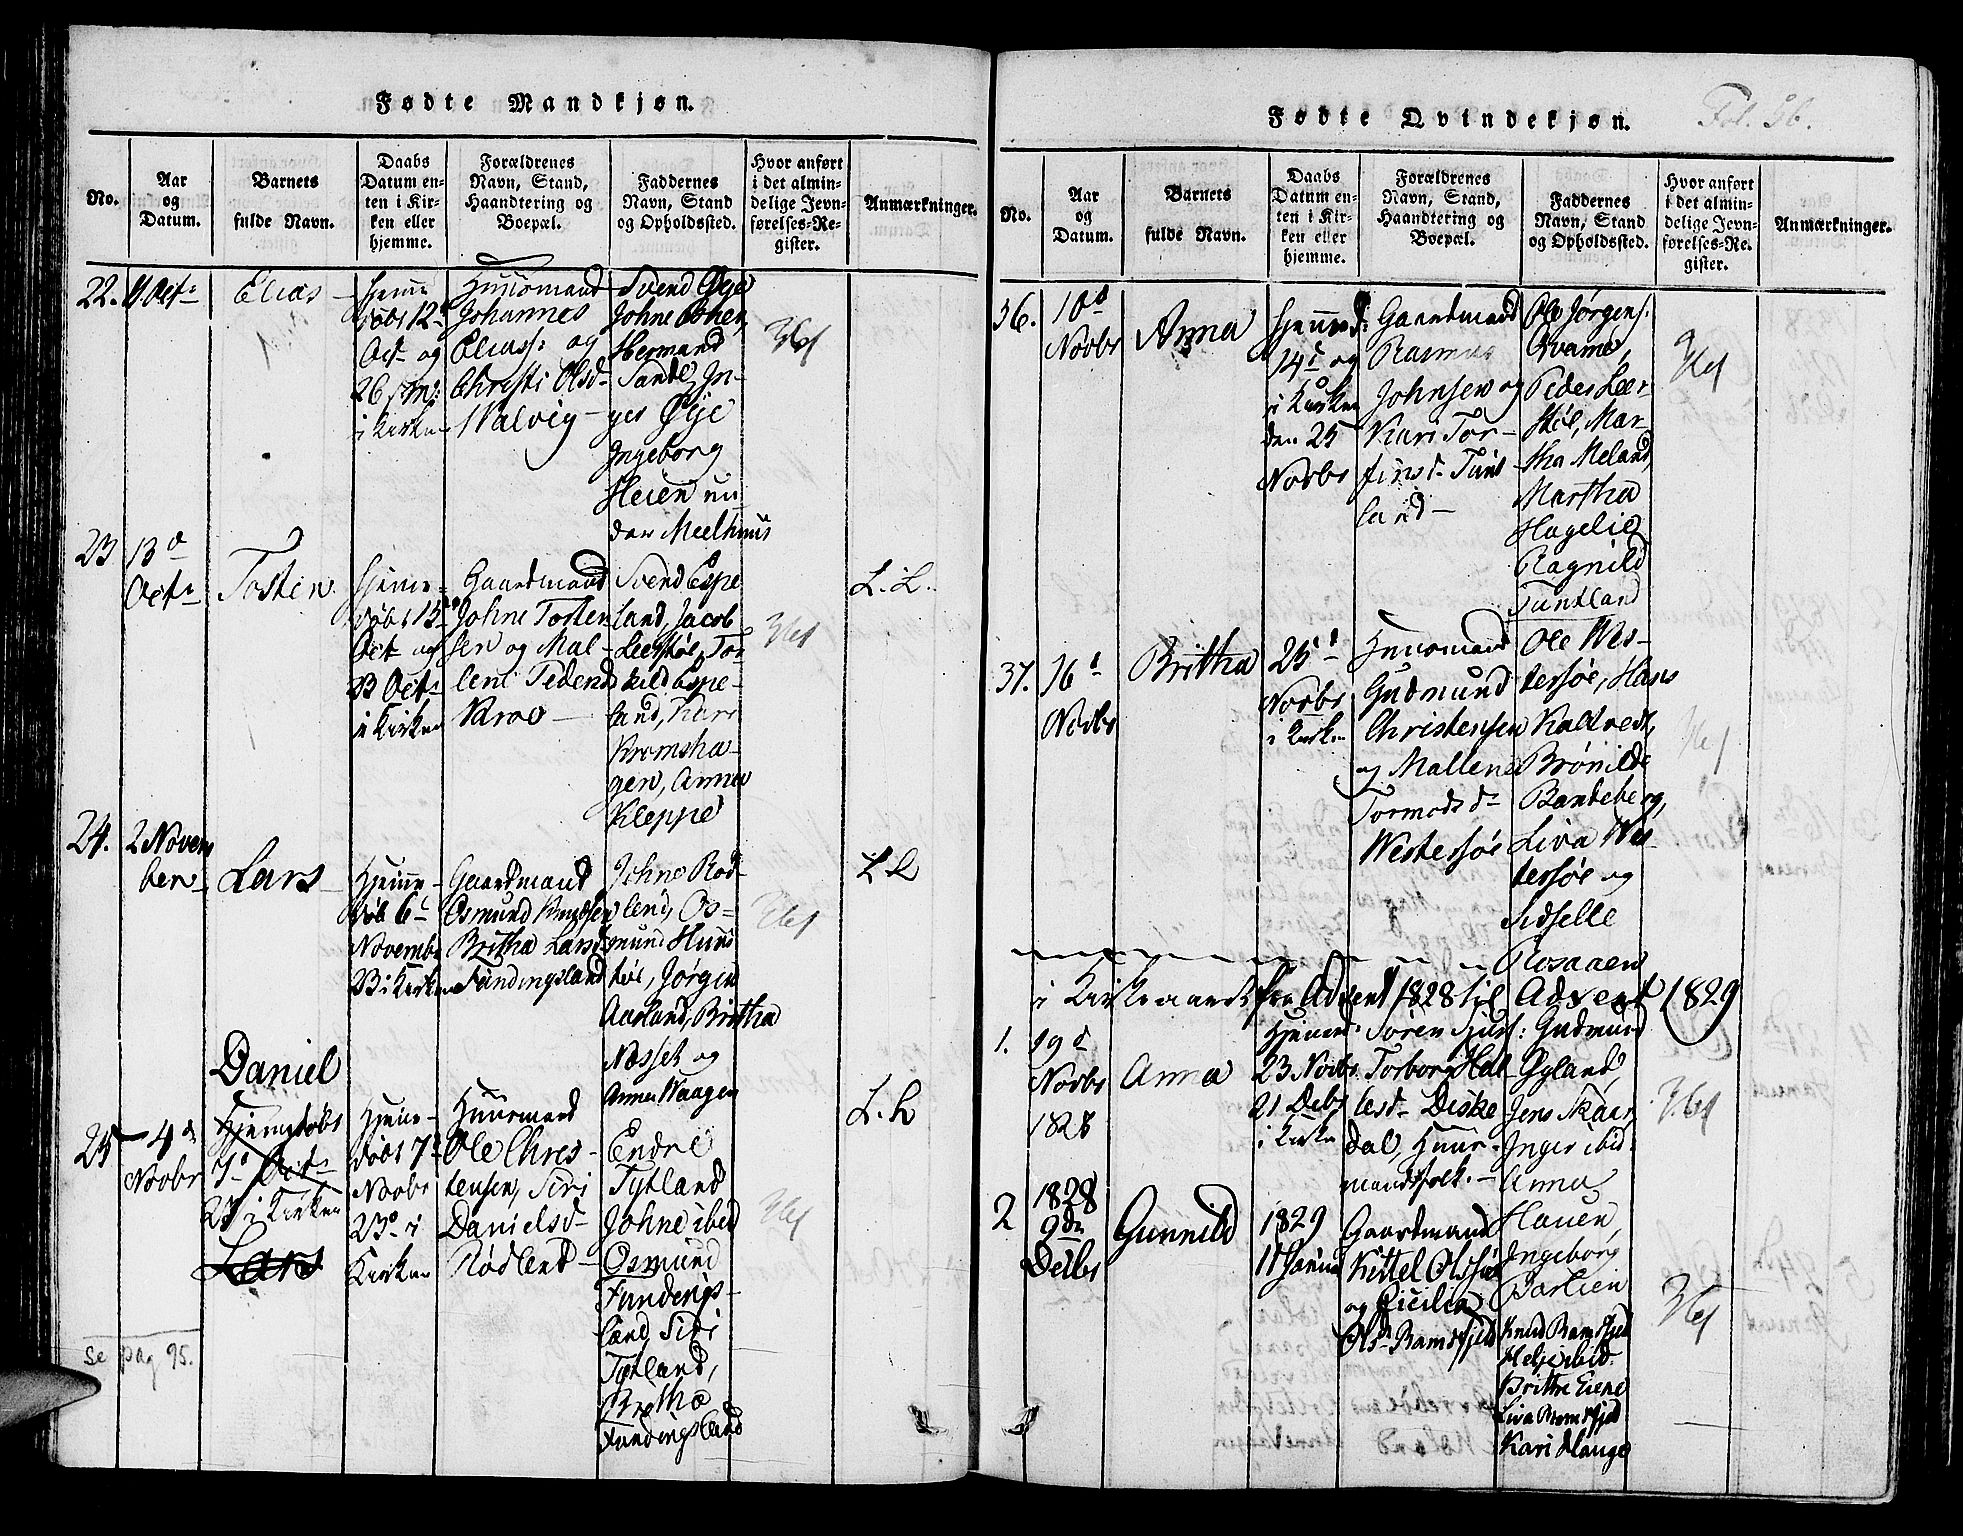 Fødte Mandkjøn.
No.
Aar
og
Datum.
Barnets
fulde Navn.
Daabs
Datum en-
ten i Kir-
ken eller
hjemme.
Forældrenes
Navn, Stand,
Haandtering og
Boepæl.
Faddernes
Navn, Stand
og Opholdssted.
Hvor anført
i det almin-
delige Jevn-
førelses-Re-
gister.
Anmærkninger.
22.
Octr
Elias
Hjemme
døbt 12
Octr og
26
i Kirken
Huusmand
Johannes
Eliass: og
Christi Olsd-
Walvig
Svend Øye
Johne
Hermand
Sande, In-
ger Øye
Ingeborg
Heien un
der Meelhuus
23
13de
Octr
Tosten
Hjeme-
døbt 15
Octr og
23 Octr
i Kirken
Gaardmand
Johne Tosten
sen og Mal-
leni Peders
Kroe
Svend Espe
land, Jacob
Leerstøe, Tor
kild Espe-
land, Kari
Kromsha-
gen, Anna
Kleppe
L. L.
24.
2 Novem
ber
Lars
Hjeme-
døb 6
Novembr
23 i Kirken
Gaardmand
Osmund Knudsen
Britha Larsd
Fundingsland
Johne Rød-
lend, Os-
mund Huns
høe, Jørgen
Aarland, Britha
Nesset og
Anna Waagen
L L
25
4de
Novbr
Daniel
Hjemdøbt
7de Octr
23 i Kirken
Lars
Hjeme-
døbt 7de
Novbr
23de i
Kirken
Huusmand
Ole Chris-
tensen, Siri
Danielsd-
Rødlend
Endre
Tytland
Johne ibid
Osmund
Fundings-
land, Siri
Tytland,
Britha
Fundingsland
L. L
se pag 95.
Fødte Qvindekjøn.
Fol. 96.
No.
Aar
og
Datum.
Barnets
fulde Navn.
Daabs
Datum en-
ten i Kir-
ken eller
hjemme.
Forældrenes
Navn, Stand,
Haandtering og
Boepæl.
Faddernes
Navn, Stand
og Opholdssted.
Hvor anført
i det almin-
delige Jevn-
førelses-Re-
gister.
Anmærkninger.
36.
10de
Novbr
Anna
Hjemed:
14de og
i Kirken
den 25
Novbr
Gaardmand
Rasmus
Johnsen og
Kari Tor-
finsd- Tunt
land
Ole Jørgens:
Qvame,
Peder Leer-
støe, Mar-
tha Meland,
Martha
Hagelie
Ragnild
Tuntland
37.
16de
Novbr
Britha
25de
Novbr
i Kirken
Huusmand
Gudmund
Christensen
og Mallene
Tormodsd-
Westersøe
Ole Wes-
tersøe, Hans
Kaltvedt,
Brønilde
Bandeberg,
Liva Wes-
tersøe og
Sidselle
Rosaaen
i Kirkeaaret fra Advent 1828 til Advent 1829
1.
19de
Novbr
1828
Anna
Hjemed:
23 Novbr
21 Debr
i Kirken
Søren Sjurs:
Torbor Hal-
lesd- Diske
dal, Huus-
mandsfolk.
Gudmund
Gyland,
Jens Skaar,
Inger ibid.
Anna
Hauen,
Ingeborg
Barlien
2
1828
9de
Decbr
Gunnild
1829
11 Januar
Gaardmand
Kittel
og Cicilia
Olsd Ramsfjed
Knud Ramsfjed
Helje ibid.
Brithe Eiene
Liva Ramsfjed
Kari Hauge